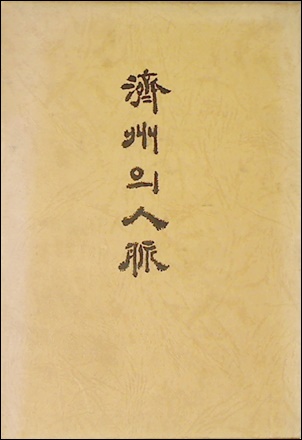 濟州의人脈